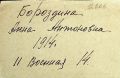 Бороздина
Анна Антоновна
1914.
II Военная 14.